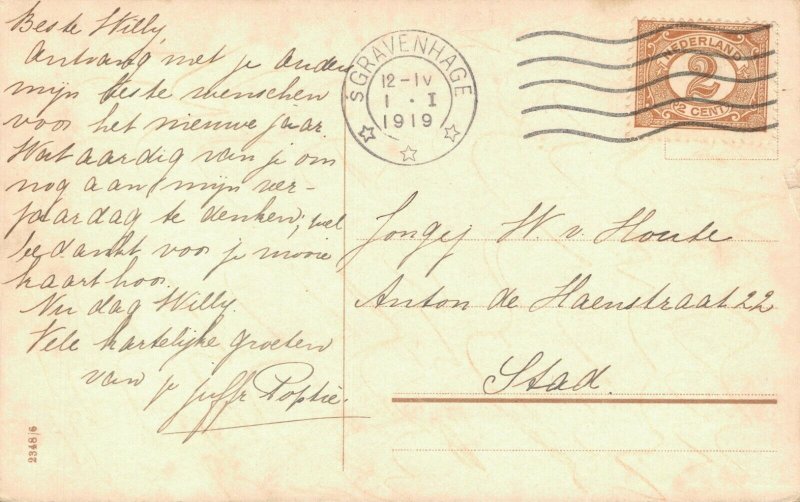 Beste Willy,
Ontvang met je ouders
mijn beste wenschen
voor het nieuwe jaar.
Wat aardig van je om
nog aan mijn ver-
jaardag te denken; wel
bedankt voor je mooie
kaart hoor.
Nu dag Willy.
Vele hartelijke groeten
van je juffr Poptie.
2348/6
'SGRAVENHAGE
12-IV
1 · I
1919
NEDERLAND
2
2 CENT
Jongej W. v. Houte
Anton de Haenstraat 22
Stad.